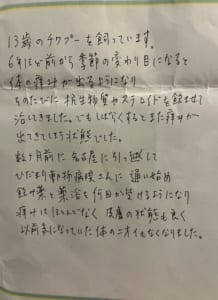 13歳のチワプーを飼っています。
6年ほど前から季節の変わり目になると
体の痒みが出るようになり
そのたびに抗生物質やステロイドを飲ませて
治してきました。でもしばらくするとまた痒みが
出てきてしまう状態でした。
数ヶ月前に名古屋に引っ越して
ひだまり動物病院さんに通い始め
飲み薬と薬浴を何回か受けるようになり
痒みはほとんどなく 皮膚の状態も良く
以前気になっていた体のニオイもなくなりました。